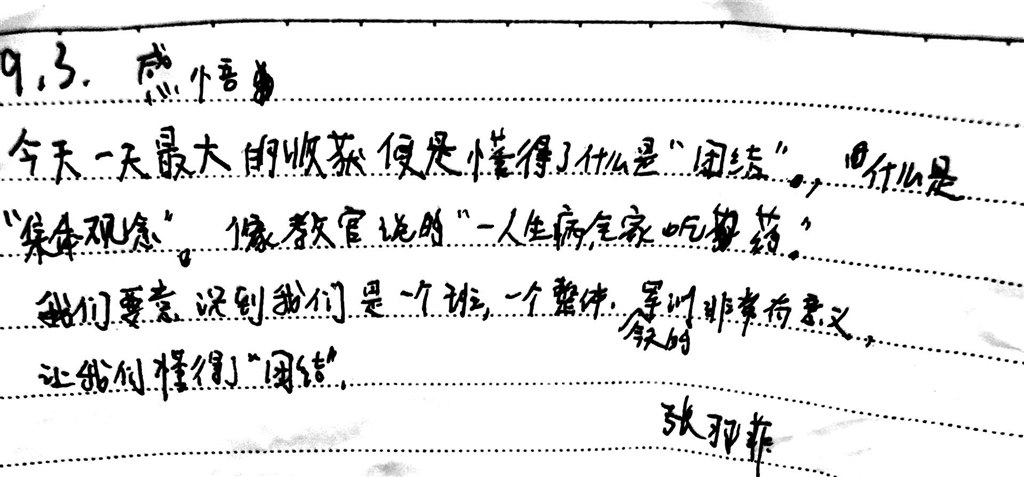 9.3. 感悟
今天一天最大的收获便是懂得了什么是“团结”。，什么是
“集体观念”。像教官说的“一人生病全家吃药。”
我们要意识到我们是一个班，一个整体。军训非常有意义，
今天的
让我们懂得了“团结”。
张羽菲